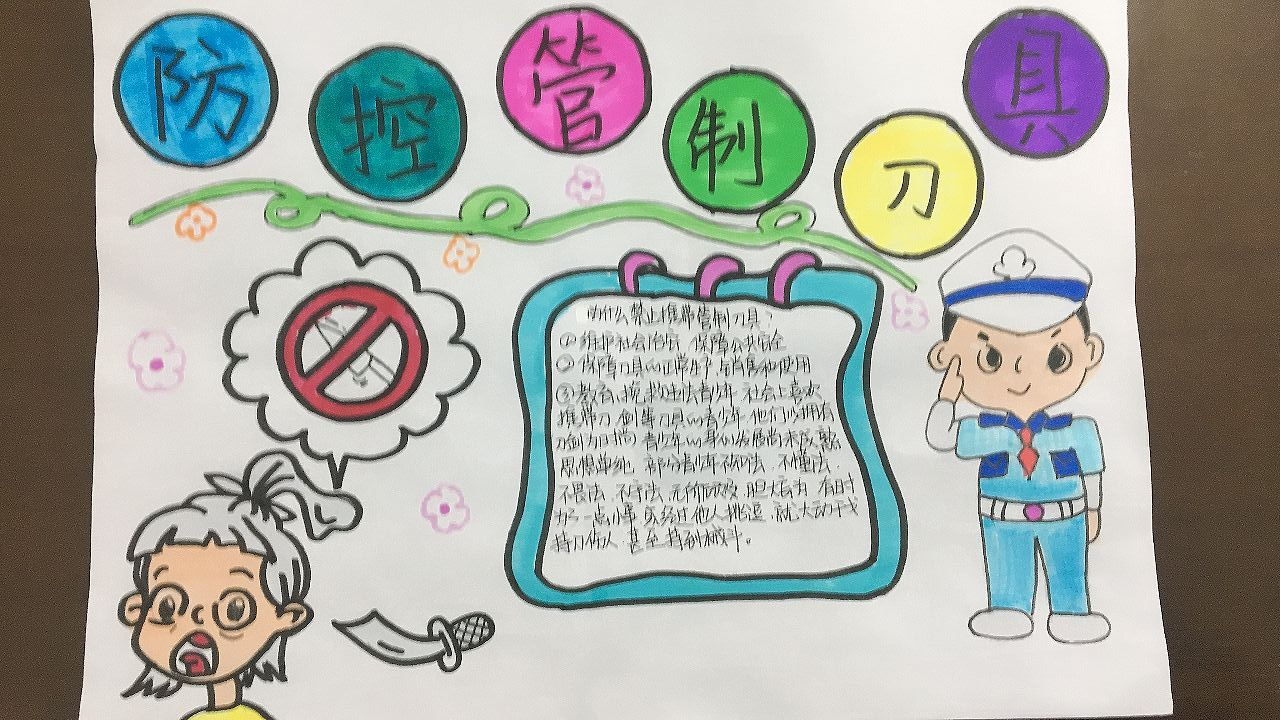 防控管制刀具
为什么禁止携带管制刀具？
①维护社会治安 保障公共安全
②保障刀具的正常生产与销售和使用
③教育、挽救违法青少年 社会上喜欢
携带刀 剑等刀具的青少年 他们以拥有
刀剑为时尚 青少年的身心发展尚未成熟
思想单纯 部分青少年不知法、不懂法、
不畏法、不守法、无所顾忌 胆大妄为 有时
为了一点小事 或经过他人挑逗、就大动干戈
持刀伤人 甚至持刀械斗。